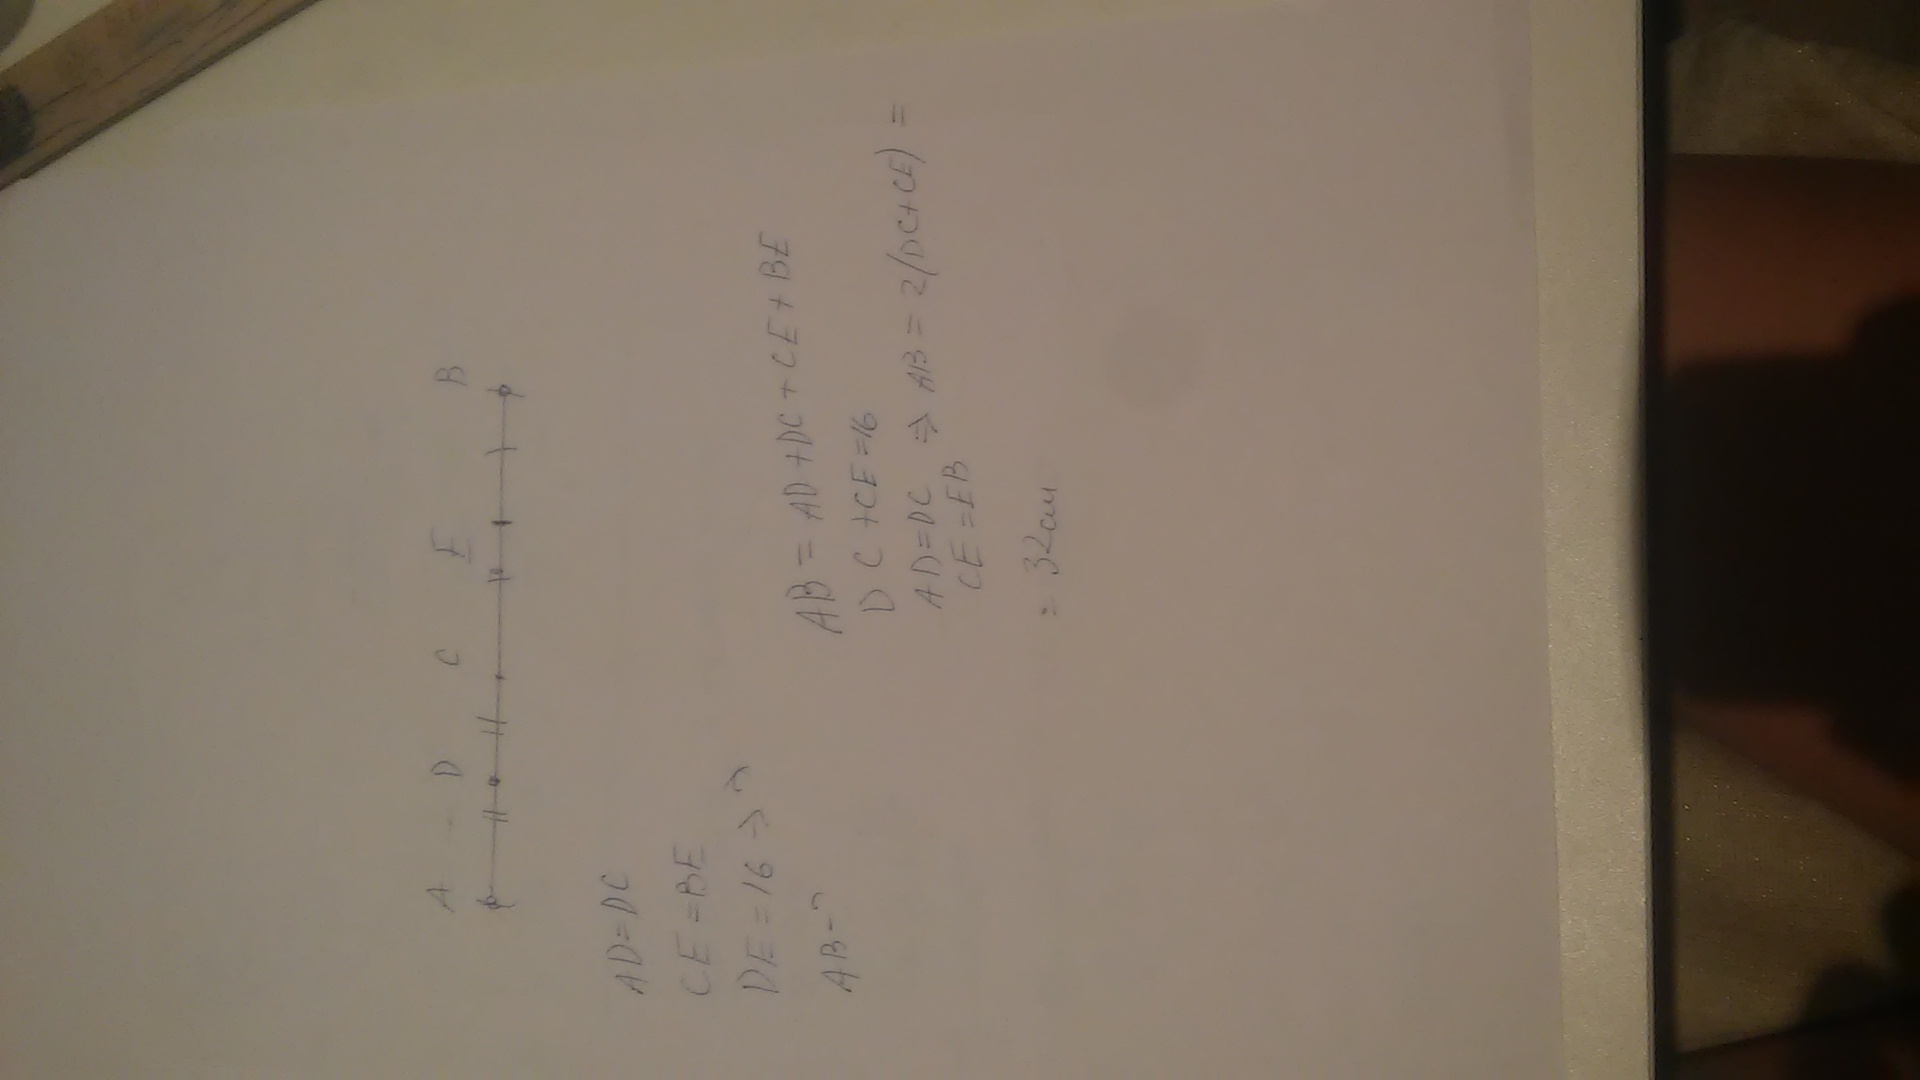 A D C E B
AD=DC
CE=BE
DE=16 =>
AB-?
AB = AD+DC+CE+BE
DC+CE=16
AD=DC => AB=2(DC+CE)=
CE=EB
= 32см